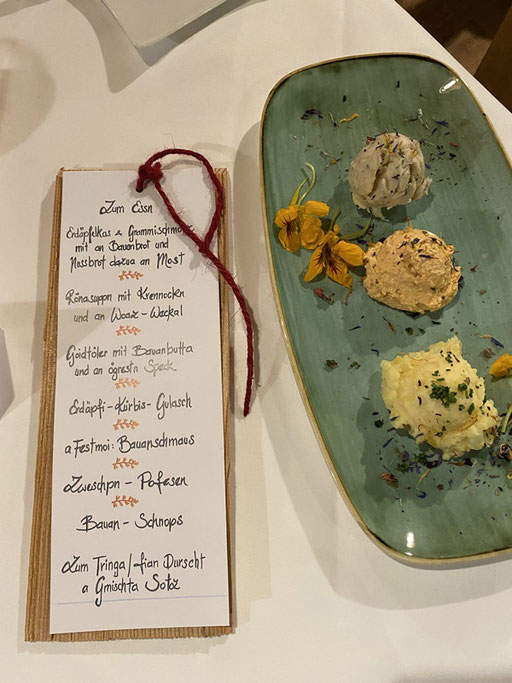 Zum Essn
Erdäpfelkas & Grammlschmoiz
mit an Bauanbrot und
Nossbrot dazua an Most
Ronasuppn mit Krennockn
und an Woaz-Weckal
Goidtöler mit Bauanbutta
und an ögrestn Speck
Erdäpfi-Kürbis-Gulasch
a Festmoi: Bauanschmaus
Zweschpn - Pofesen
Bauan - Schnops
Zum Tringa/fian Durscht
a Gmischta Sotz